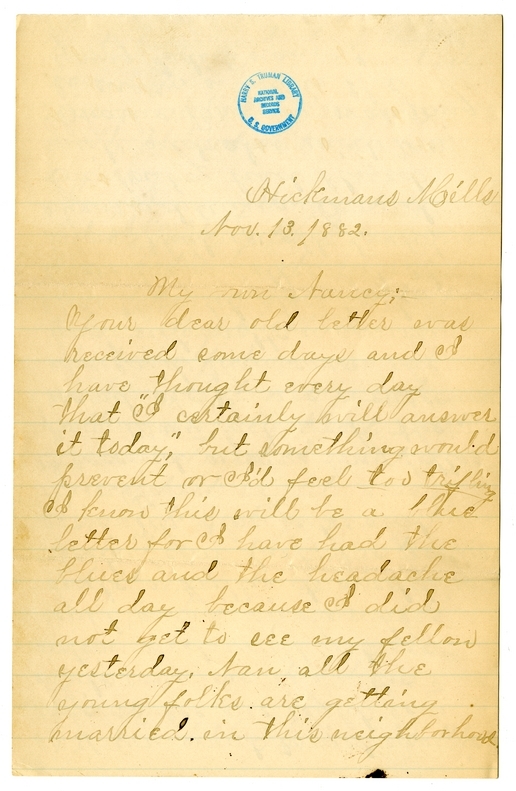 HARRY S. TRUMAN LIBRARY
NATIONAL
ARCHIVES AND
RECORDS
SERVICE
U. S. GOVERNMENT
Hickmans Mills
Nov. 13. 1882.
My own Nancy;
Your dear old letter was
received some days and I
have thought every day
that "I certainly will answer
it today," but something would
prevent or I'd feel too trifling
I know this will be a blue
letter for I have had the
blues and the headache
all day because I did
not get to see my fellow
yesterday. Nan all the
young folks are getting
married in this neighborhood